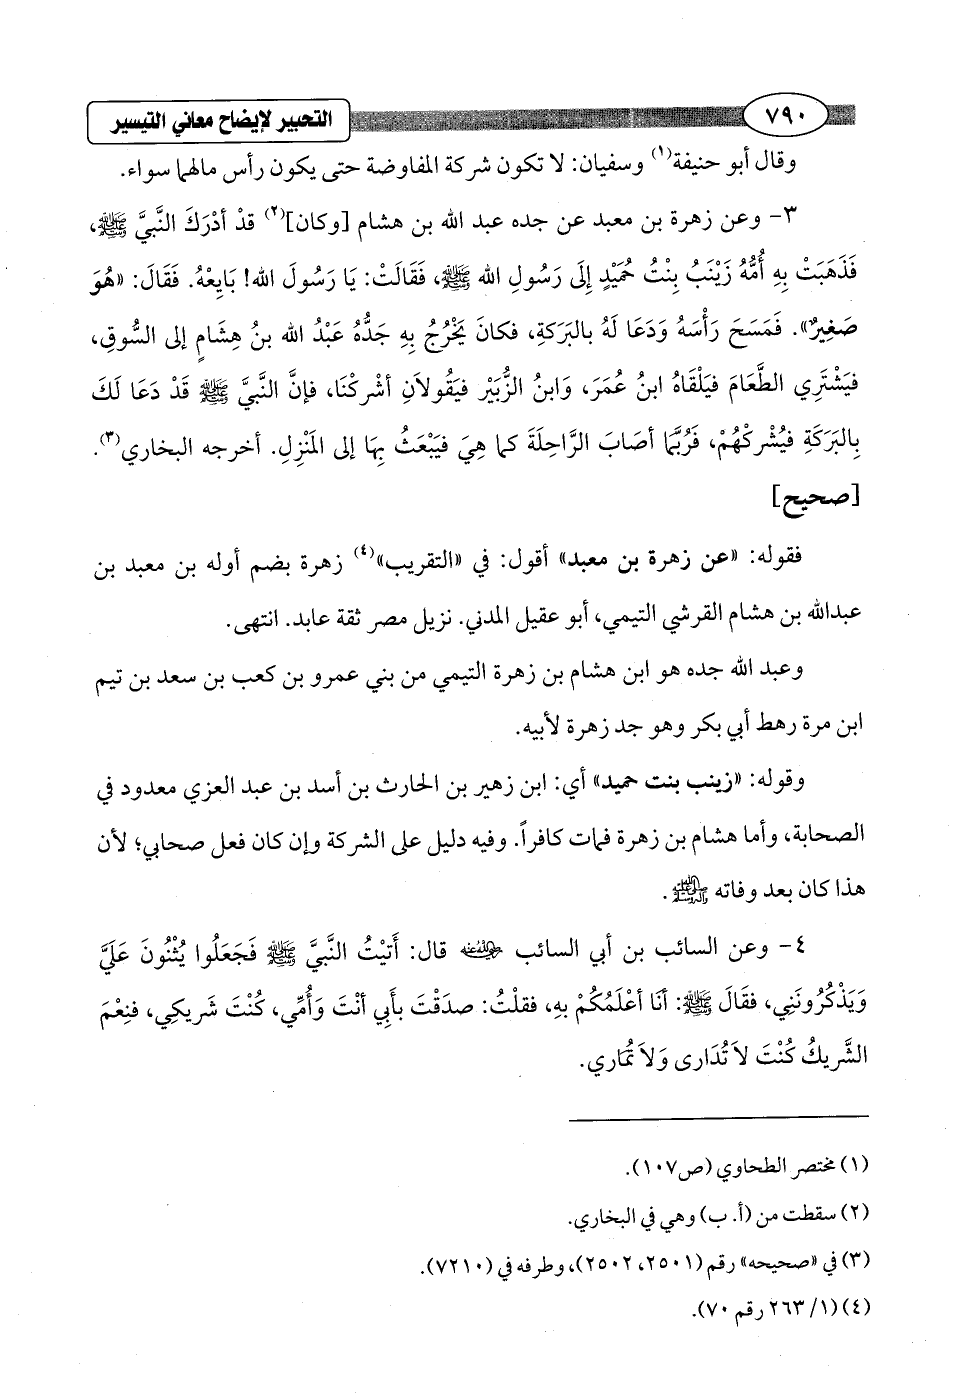 التحبير لإيضاح معاني التيسير
٧٩٠
وقال أبو حنيفة(١) وسفيان: لا تكون شركة المفاوضة حتى يكون رأس مالهما سواء.
٣- وعن زهرة بن معبد عن جده عبد الله بن هشام [وكان](٢) قدْ أدْرَكَ النَّبِيَّ ﷺ،
فَذَهَبَتْ بِهِ أُمُّهُ زَيْنَبُ بِنْتُ حُمَيْدٍ إِلَى رَسُولِ الله ﷺ، فَقَالَتْ: يَا رَسُولَ الله! بَايِعْهُ. فَقَالَ: «هُوَ
صَغِيرٌ». فَمَسَحَ رَأْسَهُ وَدَعَا لَهُ بالبَرَكَةِ، فكانَ يَخْرُجُ بِهِ جَدُّهُ عَبْدُ الله بنُ هِشَامٍ إلى السُّوقِ،
فيَشْتَرِي الطَّعَامَ فيَلْقَاهُ ابنُ عُمَرَ، وَابنُ الزُّبَيْرِ فيَقُولاَنِ أشْرِكْنَا، فإنَّ النَّبِيَّ ﷺ قَدْ دَعَا لَكَ
بِالبَرَكَةِ فيُشْرِكُهُمْ، فَرُبَّمَا أصَابَ الرَّاحِلَةَ كما هِيَ فيَبْعَثُ بِهَا إلى المَنْزِلِ. أخرجه البخاري(٣).
[صحيح]
فقوله: «عن زهرة بن معبد» أقول: في «التقريب»(٤) زهرة بضم أوله بن معبد بن
عبدالله بن هشام القرشي التيمي، أبو عقيل المدني. نزيل مصر ثقة عابد. انتهى.
وعبد الله جده هو ابن هشام بن زهرة التيمي من بني عمرو بن كعب بن سعد بن تيم
ابن مرة رهط أبي بكر وهو جد زهرة لأبيه.
وقوله: «زينب بنت حميد» أي: ابن زهير بن الحارث بن أسد بن عبد العزي معدود في
الصحابة، وأما هشام بن زهرة فمات كافراً. وفيه دليل على الشركة وإن كان فعل صحابي؛ لأن
هذا كان بعد وفاته ﷺ.
٤- وعن السائب بن أبي السائب رضي الله عنه قال: أَتَيْتُ النَّبِيَّ ﷺ فَجَعَلُوا يُثْنُونَ عَلَيَّ
وَيَذْكُرُونَنِي، فقَالَ ﷺ: أَنَا أعْلَمُكُمْ بِهِ، فقلْتُ: صدَقْتَ بأَبِي أنْتَ وَأُمِّي، كُنْتَ شَرِيكِي، فنِعْمَ
الشَّرِيكُ كُنْتَ لاَ تُدَارى وَلاَ تُمَاري.
(١) مختصر الطحاوي (ص١٠٧).
(٢) سقطت من (أ. ب) وهي في البخاري.
(٣) في «صحيحه» رقم (٢٥٠١، ٢٥٠٢)، وطرفه في (٧٢١٠).
(٤) (١/ ٢٦٣ رقم ٧٠).